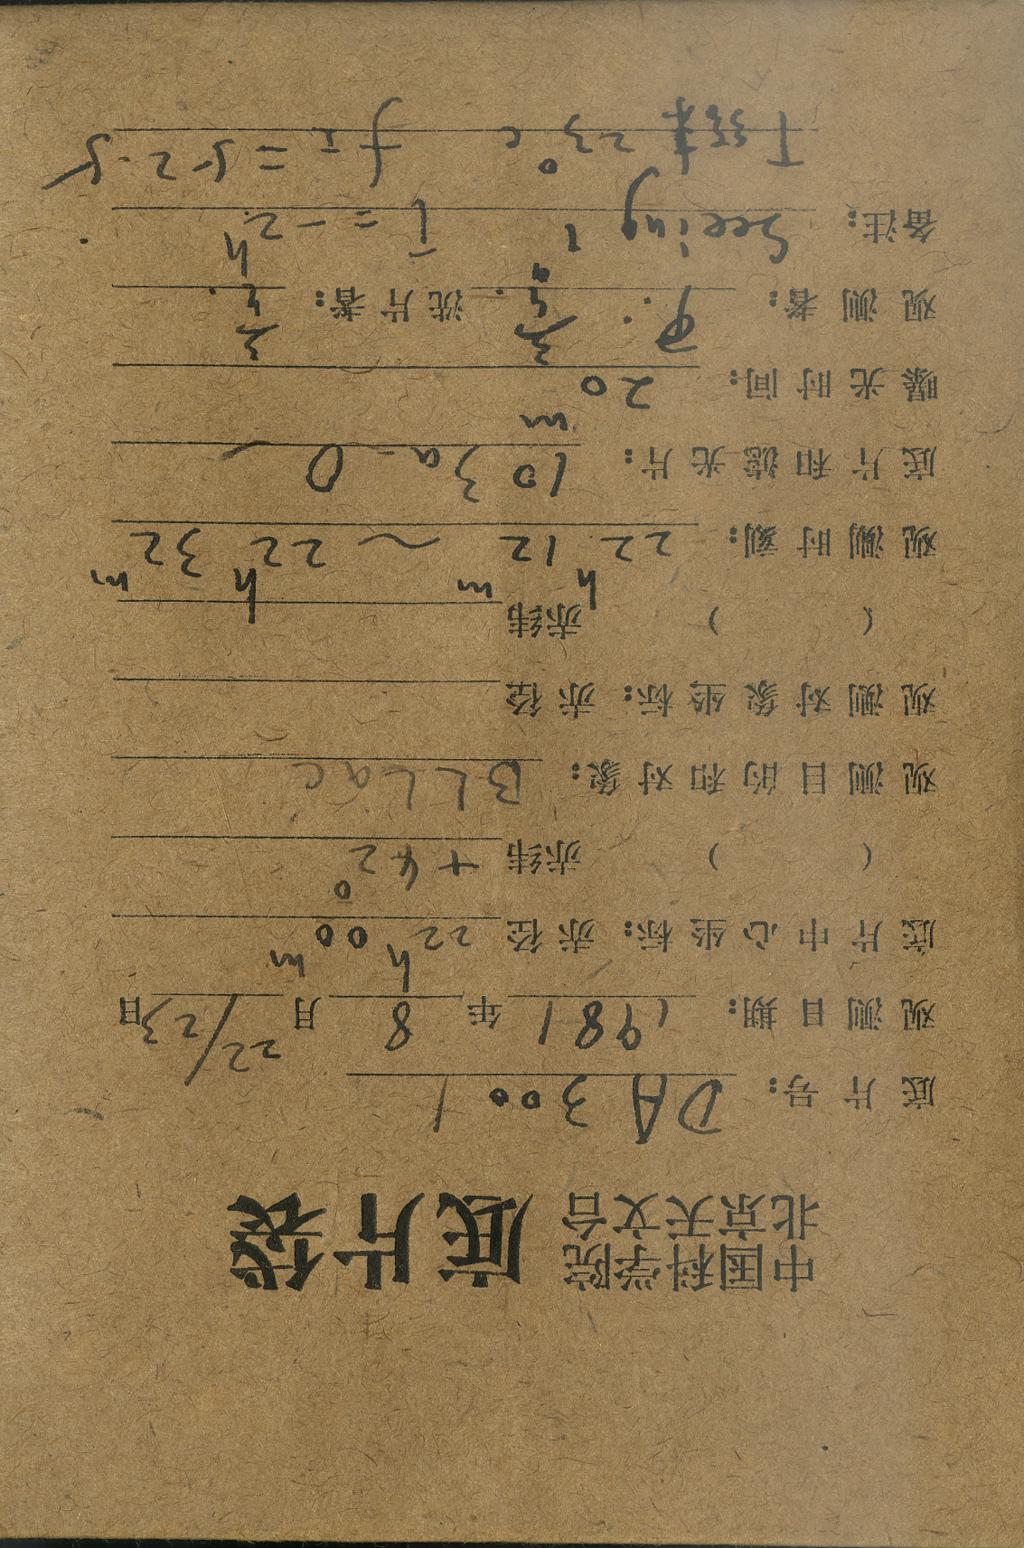 中国科学院
北京天文台 底片袋
底片号: DA 3001
观测日期: 1981 年 8 月 22/23 日
底片中心坐标: 赤径 22h 00m
( ) 赤纬 +42°
观测目的和对象: BLLac
观测对象坐标: 赤径
( ) 赤纬
观测时刻: 22h 12m ~ 22h 32m
底片和滤光片: 103a-O
曝光时间: 20m
观测者: 洗片者:
备注: Seeing 1 i = -2
T 23°C f = 52.5